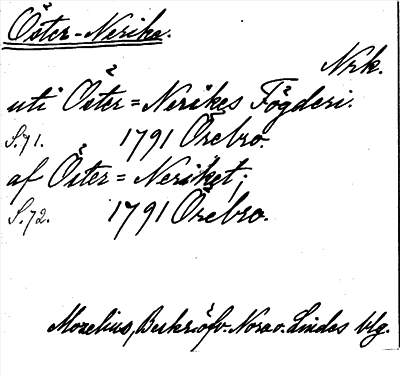 Öster-Nerike.
Nrk.
uti Öster=Nerikes Fögderi.
S.71. 1791 Örebro.
af Öster=Neriket;
S.72. 1791 Örebro.
Mozelius, Beskr. öfv. Nora o. Lindes blg.